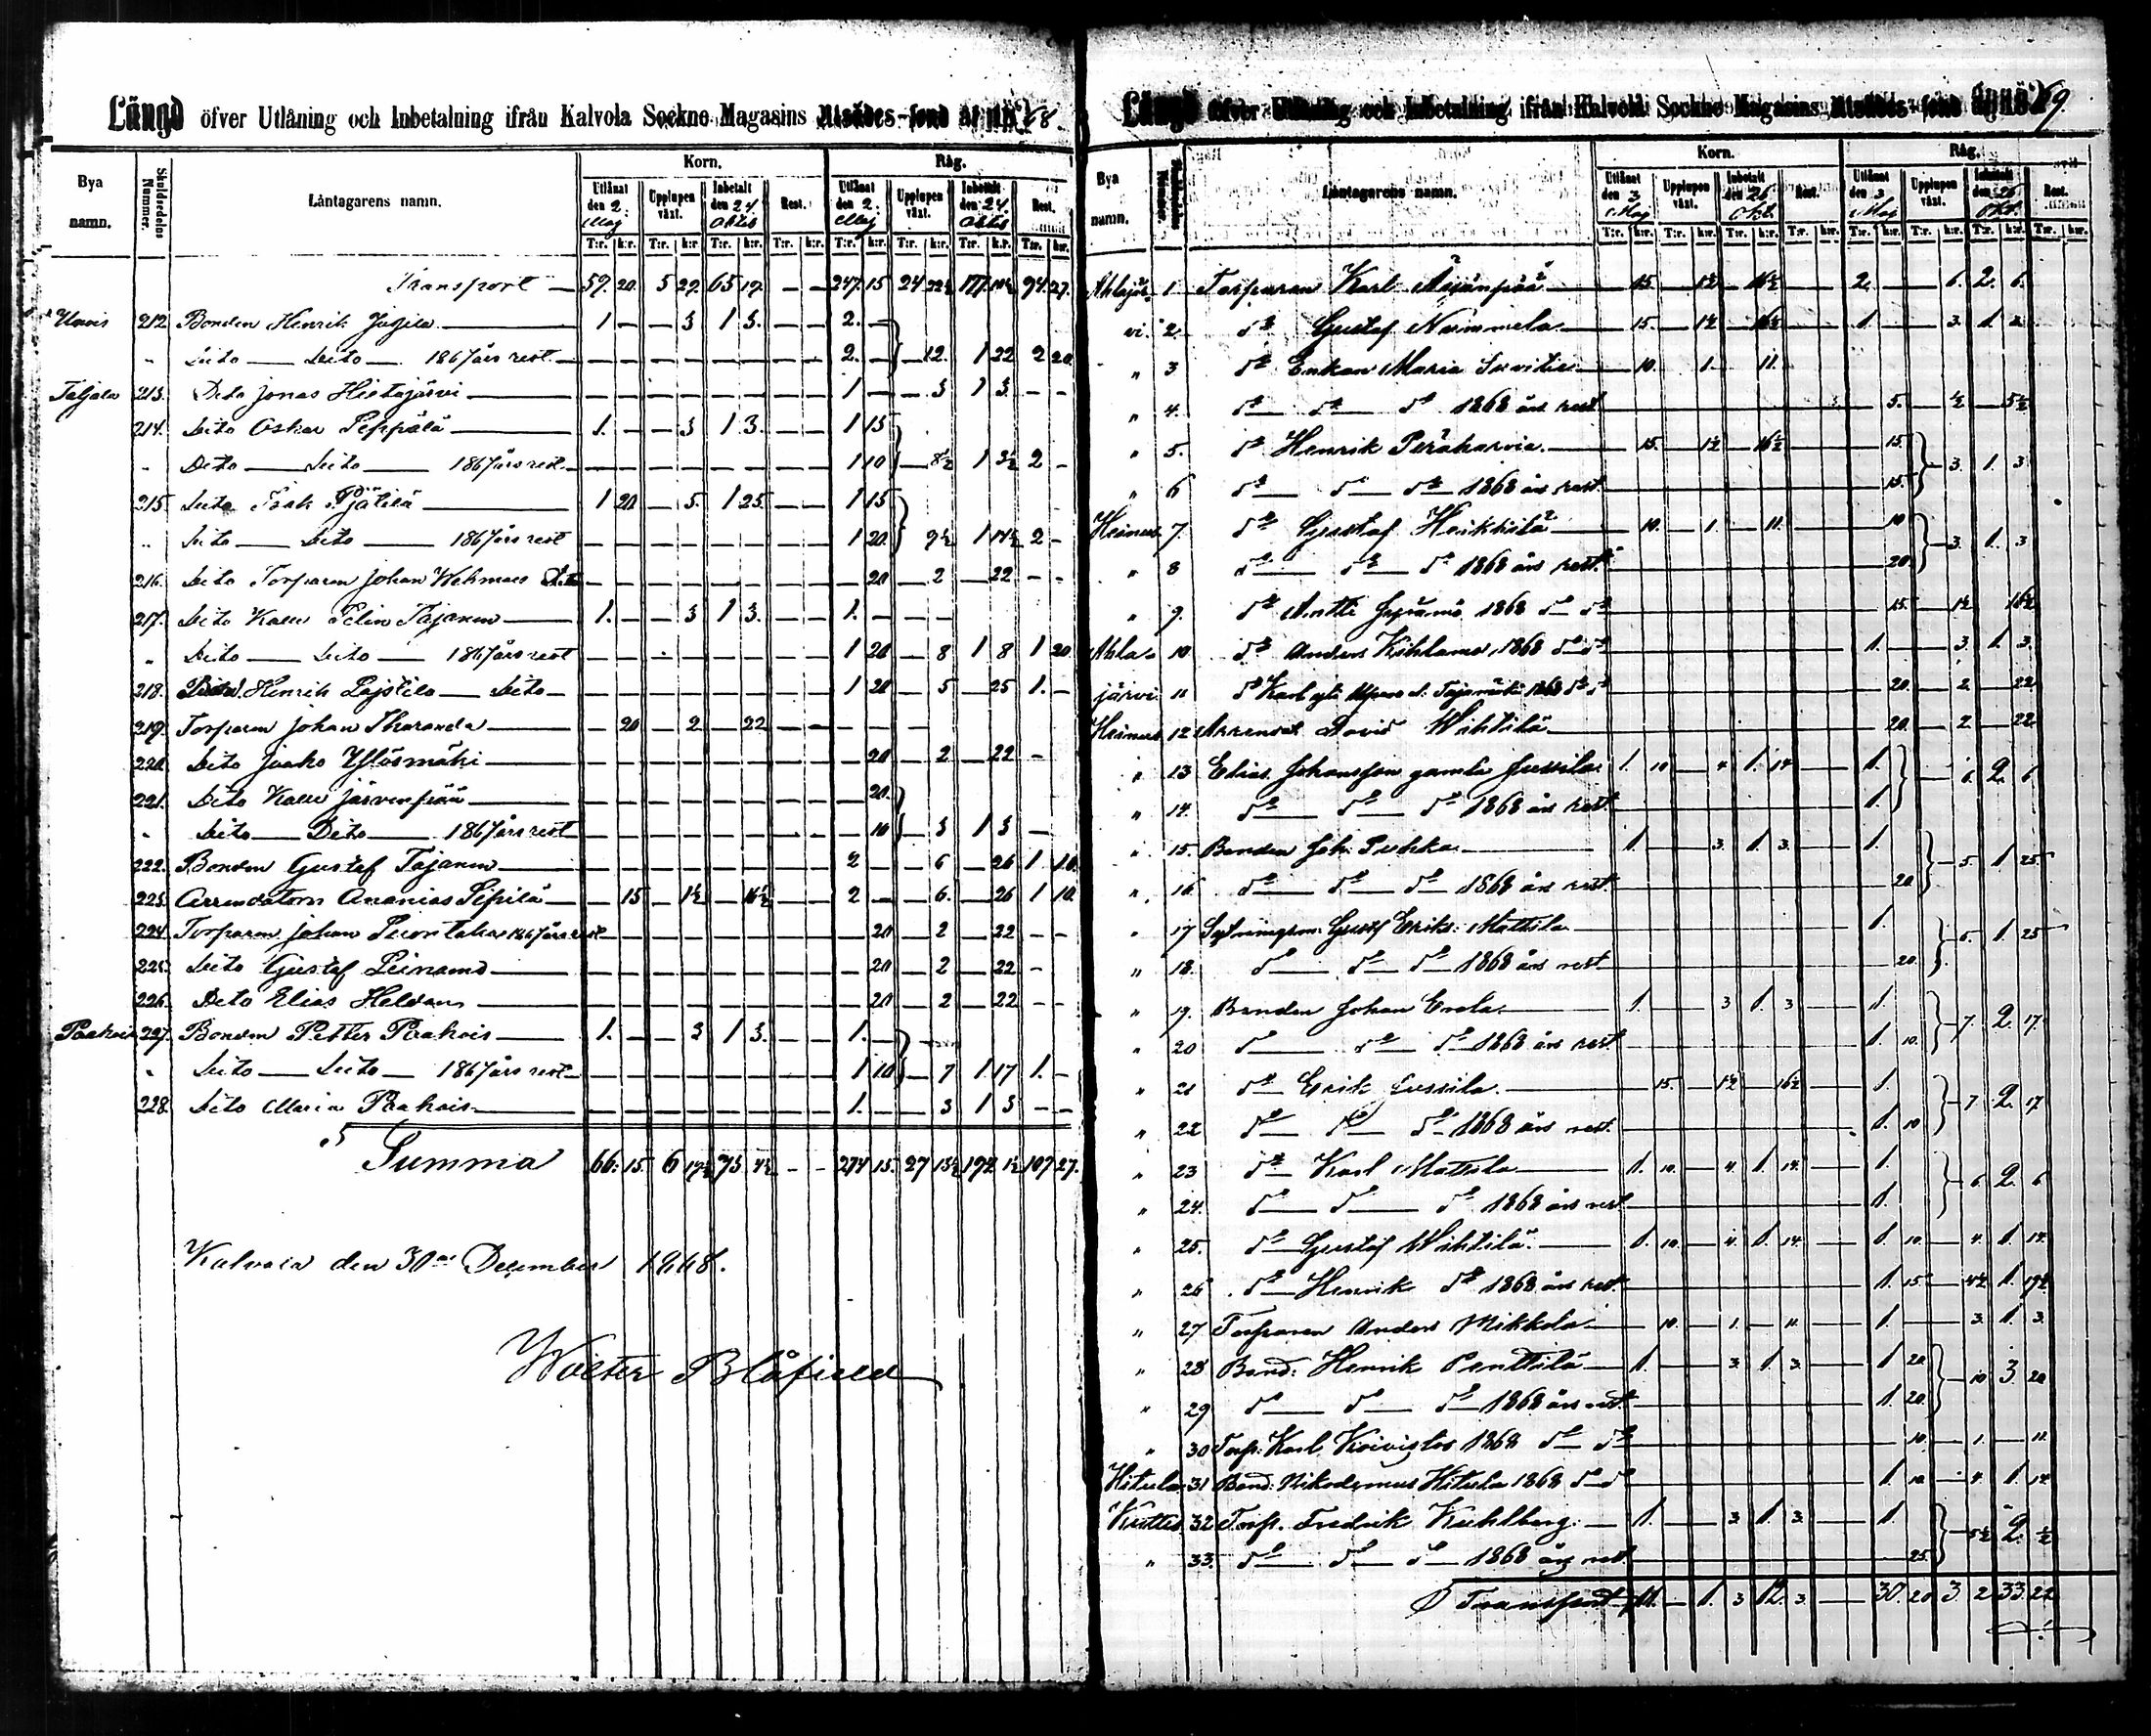 Längd öfver Utlåning och Inbetalning ifrån Kalvola Sockne Magasins Utsädes-fond år 1868.
Bya namn. Skuldsedelns Nummer. Låntagarens namn. Korn. Råg.
Utlånat den 2 Maj Upplupen växt. Inbetalt den 24 Oktob Rest. Utlånat den 2. Maj Upplupen växt. Inbetalt den 24 Oktob Rest.
T:r. k:r. T:r. k:r. T:r. k:r. T:r. k:r. T:r. k:r. T:r. k:r. T:r. k:r. T:r. k:r.
Transport 59. 20. 5 29. 65 19. — — 247. 15 24 22½ 177. 10½ 94. 27.
212 Bonden Henrik 1 — — 3 1 3. — — 2. —
" Dito — Dito — 1867 års rest — 2. — 12. 1 22 2 20
Taljala 213. Dito Jonas Hietajärvi — 1 — — 3 1 3. — —
214. Dito Oskar Seppälä 1. — — 3 1 3. — — 1 15
" Dito — Dito — 1867 års rest — 1 10 — 8½ 1 3½ 2 —
215 Dito Isak 1 20 — 5. 1 25. — — 1 15
" Dito — Dito — 1867 års rest — 1 20 9½ 1 14½ 2 —
216. Dito Torparen Johan — 20 — 2 — 22 — —
217. Dito Kalle Pajanen 1. — — 3 1 3. — — 1. —
" Dito — Dito — 1867 års rest — 1 20 — 8 1 8 1 20
218. Henrik — Dito — 1 20 — 5 — 25 1. —
219. Torparen Johan — 20 — 2 — 22 — —
220. Dito Jaako — 20 — 2 — 22 —
221. Dito Kalle Järvenpää — 20.
" Dito — Dito — 1867 års rest — 10 — 3 1 3 —
222. Bonden Gustaf Pajanen — 2 — — 6 — 26 1 10.
223. Arrendatorn Ananias — 15 — 1½ — 16½ — — 2 — — 6. — 26 1 10.
224. Torparen Johan 1867 års rest — 20 — 2 — 22 — —
225. Dito Gustaf — 20 — 2 — 22 —
226. Dito Elias — 20 — 2 — 22 — —
Paahois 227. Bonden Petter Paahois 1. — — 3 1 3. — — 1. —
" Dito — Dito — 1867 års rest — 1 10 — 7 1 17 1. —
228. Dito Maria Paahois — 1. — — 3 1 3 — —
Summa 66. 15. 6 73 4½ — — 274 15. 27 15½ 194 1½ 107 27.
Kalvola den 30 December 1868.
Wolter Blåfield
Längd öfver Utlåning och Inbetalning ifrån Kalvola Sockne Magasins Utsädes-fond år 1869
Bya namn. Låntagarens namn. Korn. Råg.
Utlånat den 3 Maj Upplupen växt. Inbetalt den 26 Okt. Rest. Utlånat den 3 Maj Upplupen växt. Inbetalt den 26 Okt. Rest.
T:r. k:r. T:r. k:r. T:r. k:r. T:r. k:r. T:r. k:r. T:r. k:r. T:r. k:r. T:r. k:r.
Ahlajär 1 Torparen Karl Äijänpää 15. 1½ 16½ 2. 6. 2. 6.
vi. 2. do Gustaf Nummela 15. 1½ 16½ 1. 3. 1 3.
" 3 do Enkan Maria 10. 1. 11.
" 4. do do do 1868 års rest 5. ½ 5½
" 5. do Henrik Peräharvia 15. 1½ 16½ 15. 3. 1. 3
" 6 do do do 1868 års rest. 15.
Heinus 7 do Gustaf Heikkilä 10. 1. 11. 10 3. 1. 3
" 8 do do do 1868 års rest. 20.
" 9. do Antti 1868 do do 15. 1½ 16½
Ahla- 10 do Anders Kihlamo 1868 do do 1. 3. 1. 3.
järvi 11 do Karl 1868 do do 20. 2. 22
Heinus 12 Arrendat. David Wihtilä 20. 2. 22
" 13 Elias Johansson gamla Jussila 1. 10 4 1. 14 1. 6. 2. 6
" 14. do do do 1868 års rest 1.
" 15. Bonden Joh. 1. 3. 1. 3. 1. 5. 1. 25
" 16 do do do 1868 års rest 20
" 17 Gustf Eriks: Mattila 1. 5. 1. 25
" 18. do do do 1868 års rest 20.
" 19. Bonden Johan Erola 1. 3 1. 3 1. 7. 2. 17.
" 20 do do do 1868 års rest. 1. 10.
" 21 do Erik Jussila 15. 1½ 16½ 1. 7 2. 17
" 22 do do do 1868 års rest. 1. 10
" 23 do Karl Mattila 1. 10. 4. 1. 14. 1. 6 2. 6
" 24. do do do 1868 års rest 1.
" 25. do Gustaf Wihtilä 1. 10. 4. 1. 14. 1. 10. 4. 1. 14.
" 26 do Henrik do 1868 års rest. 1. 15. 4½ 1. 19½
" 27 Torparen Anders Mikkola 10. 1. 11. 1. 3. 1. 3.
" 28 Bond: Henrik Penttilä 1. 3 1. 3. 1 20 10 3. 20
" 29 do do do 1868 års rest 1. 20.
" 30 Torp: Karl Koivisto 1868 do do 10. 1. 11.
Hitula 31 Bond: Nikodemus Hitula 1868 do do 1. 10. 4. 1. 14
Kuttis 32 Torp. Fredrik Kuhlberg. 1. 3. 1. 3. 1. 5½ 2. ½
" 33. do do do 1868 års rest. 25.
Transport 11. — 1. 3 12. 3. 30. 20 3. 2 33. 22